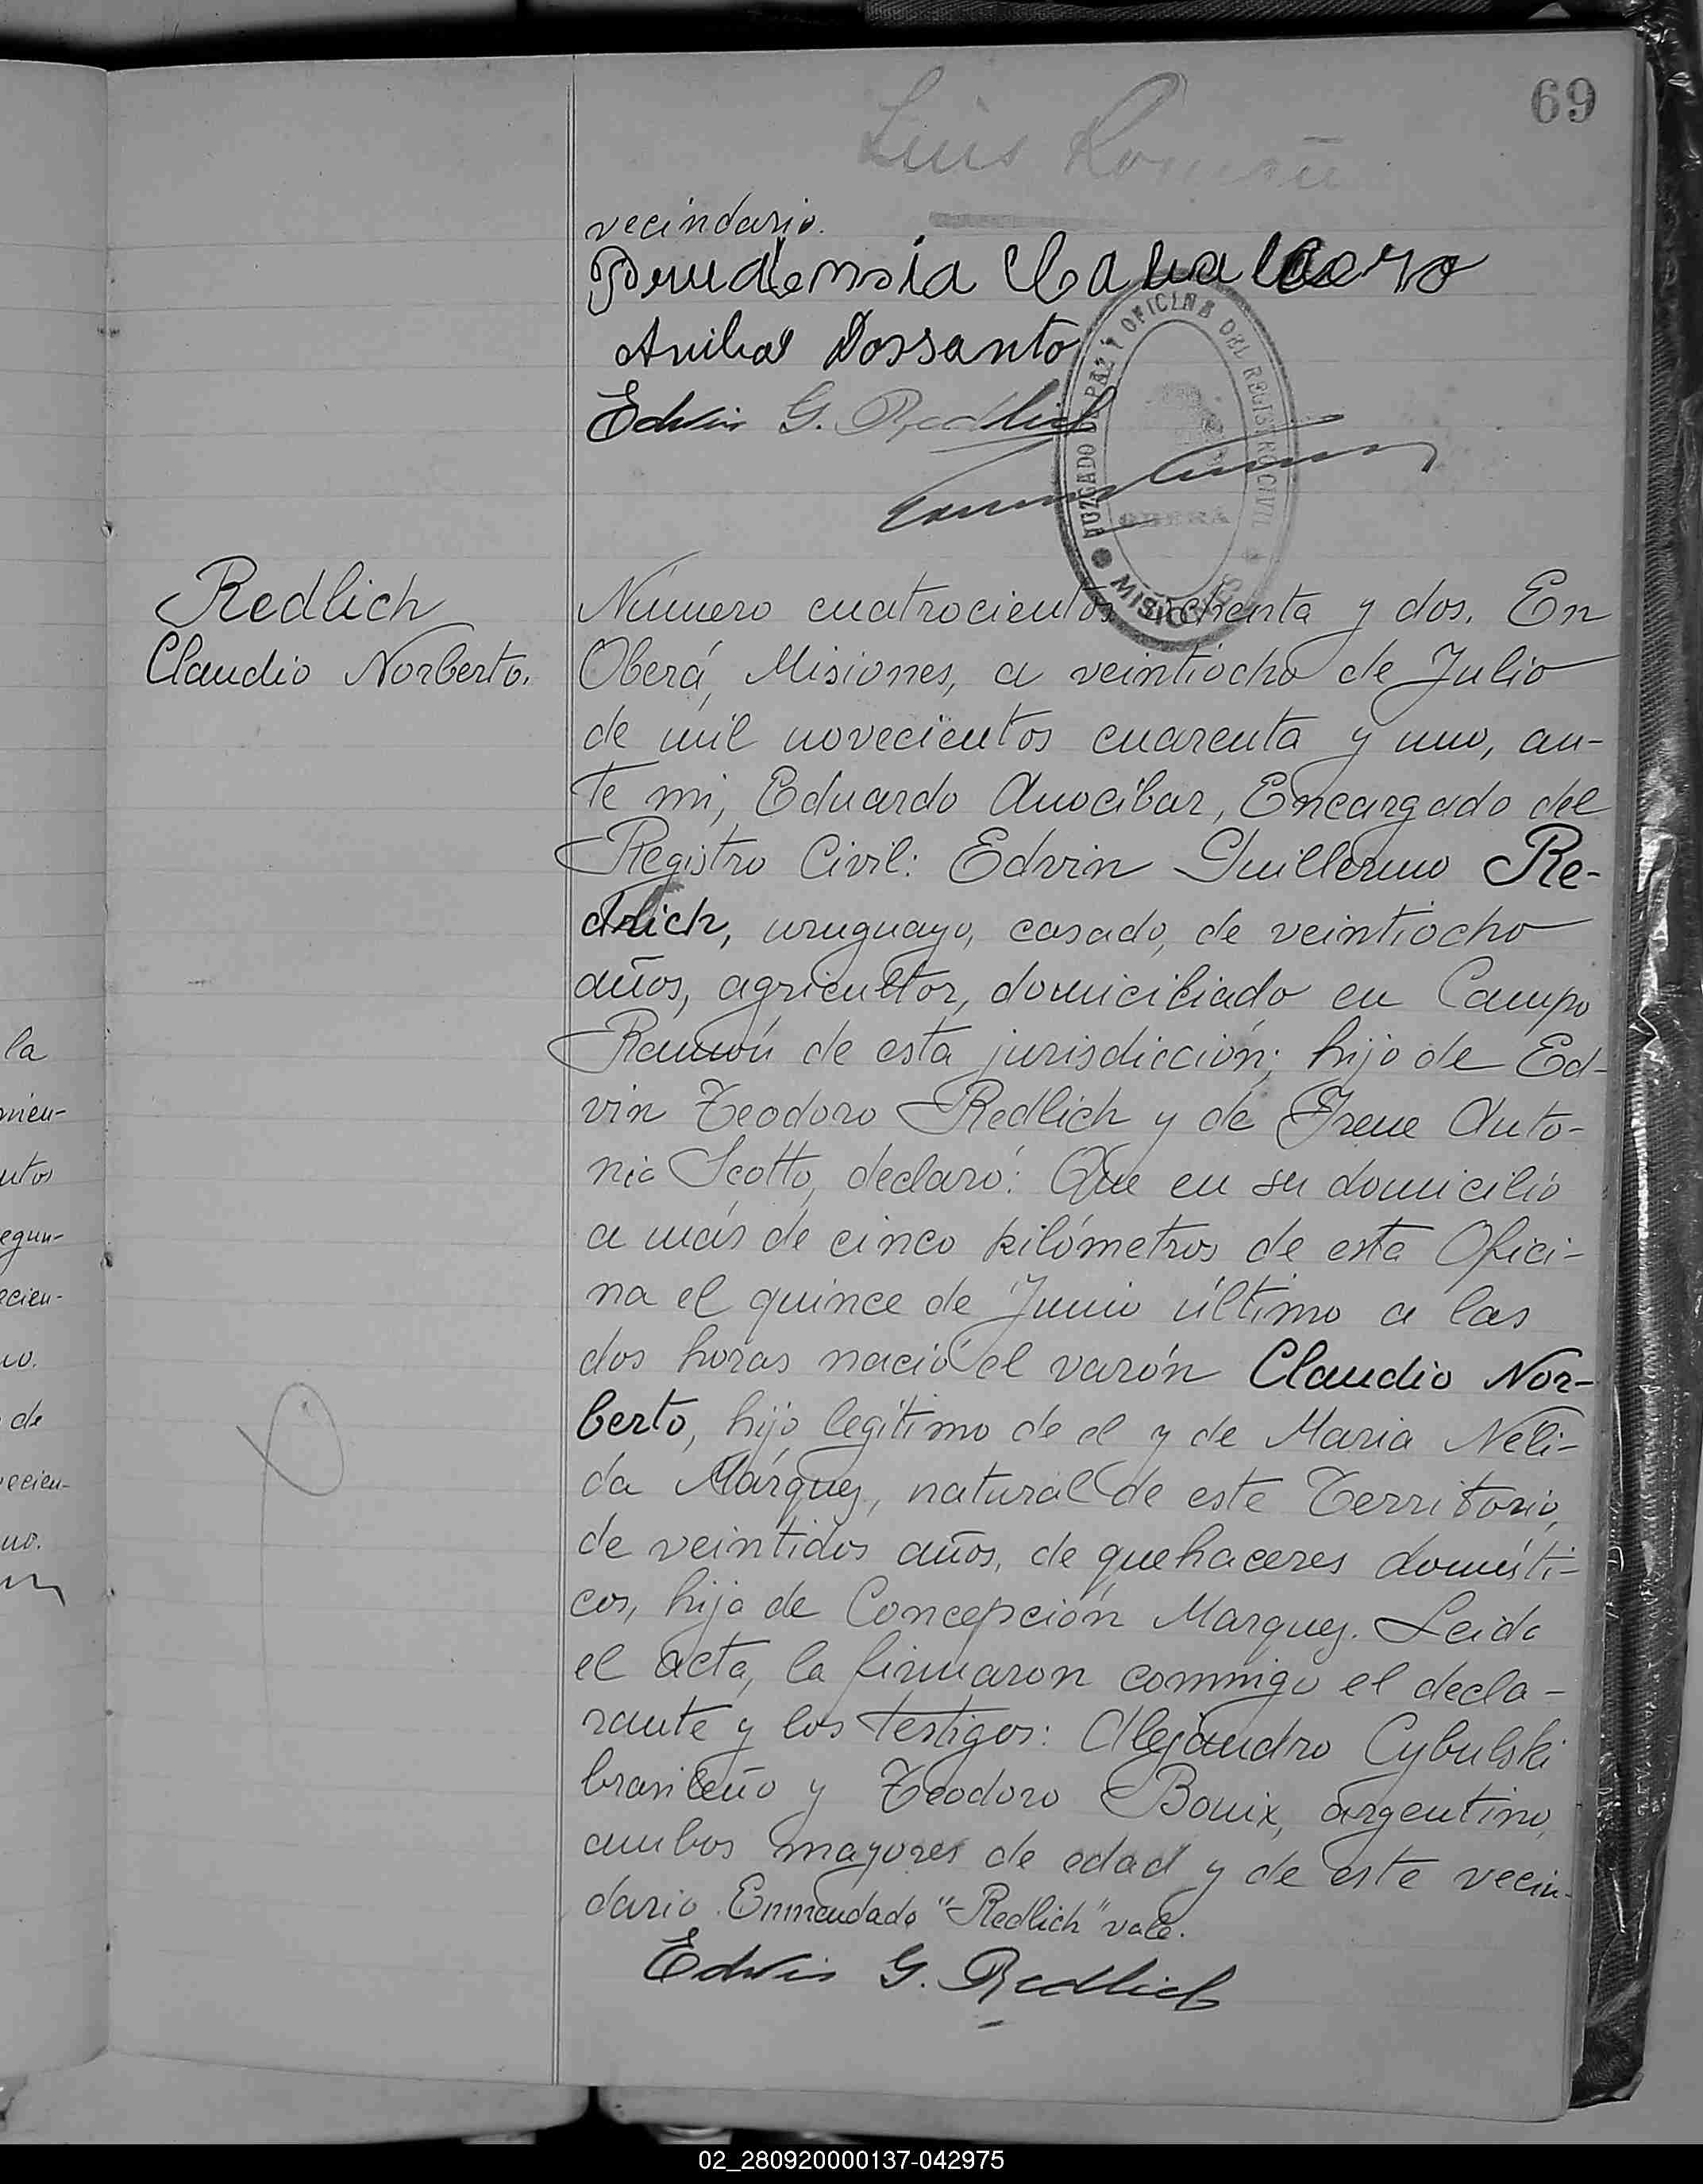 69
Luis Roman
vecindario.
Prudensia Cavalcero
Anibal Dossanto
Edvin G. Redlich
JUZGADO DE PAZ Y OFICINA DEL REGISTRO CIVIL
OBERÁ
MISIONES
Redlich
Claudio Norberto.
Número cuatrocientos ochenta y dos. En
Oberá, Misiones, a veintiocho de Julio
de mil novecientos cuarenta y uno, an-
te mi, Eduardo Anocibar, Encargado del
Registro Civil: Edvin Guillermo Re-
dlich, uruguayo, casado, de veintiocho
años, agricultor, domiciliado en Campo
Ramón de esta jurisdicción; hijo de Ed-
vin Teodoro Redlich y de Irene Anto-
nia Scotto, declaró: Que en su domicilio
a más de cinco kilómetros de esta Ofici-
na el quince de Junio último a las
dos horas nació el varón Claudio Nor-
berto, hijo legítimo de el y de Maria Neli-
da Márquez, natural de este Territorio,
de veintidos años, de quehaceres domésti-
cos, hija de Concepción Marquez. Leida
el acta, la firmaron conmigo el decla-
rante y los testigos: Alejandro Cybulski
brasileño y Teodoro Bouix, argentino,
ambos mayores de edad y de este vecin-
dario. Enmendado "Redlich" vale.
Edvin G. Redlich
la
mien-
ntos
egun-
ecien-
no.
de
vecien-
no.
02_280920000137-042975